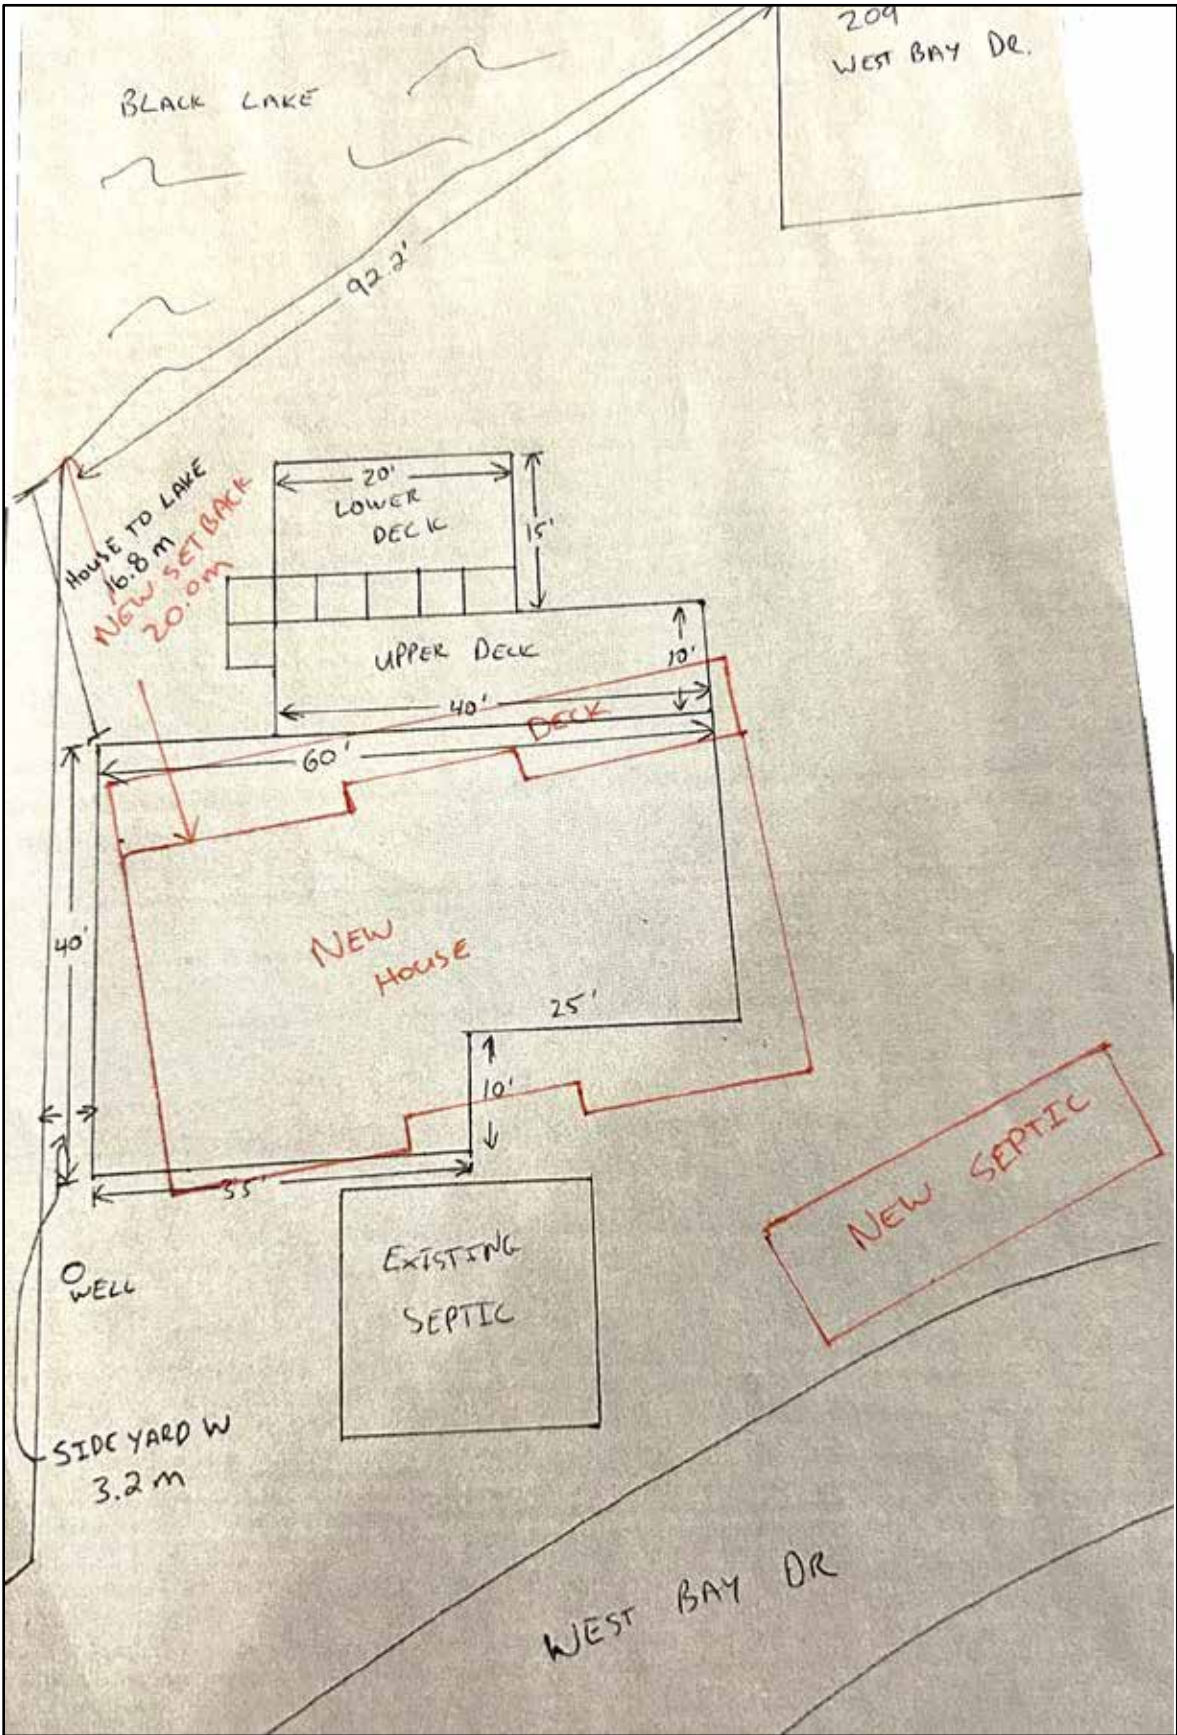 209
WEST BAY DR.
BLACK LAKE
92.2'
HOUSE TO LAKE
16.8 m
NEW SET BACK
20.0m
20'
LOWER
DECK
15'
UPPER DECK
10'
40'
DECK
60'
40'
NEW
HOUSE
25'
10'
35'
EXISTING
SEPTIC
NEW SEPTIC
WELL
SIDE YARD W
3.2 m
WEST BAY DR